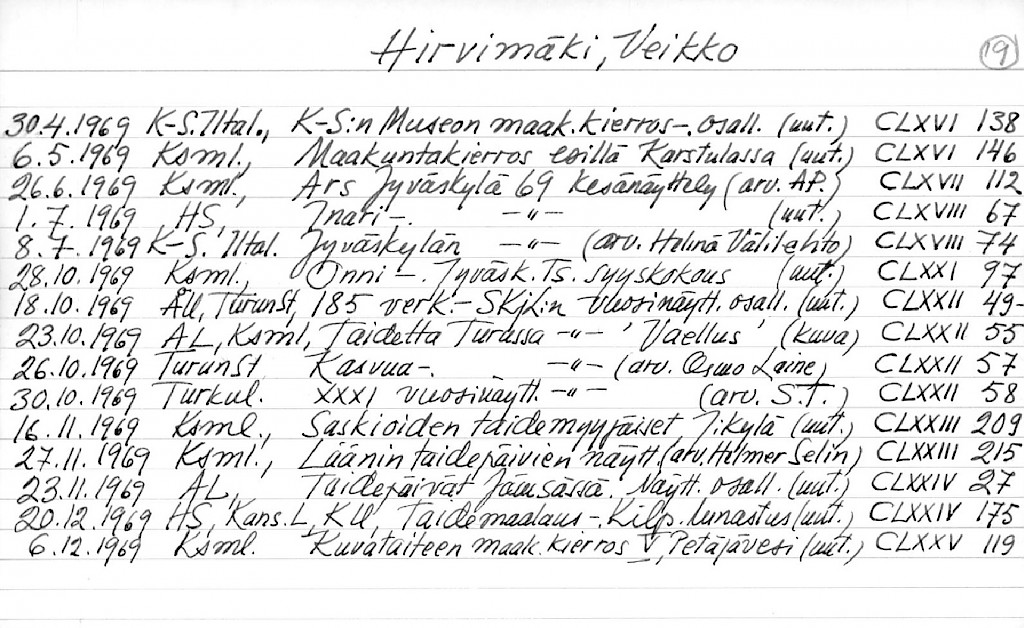 Hirvimäki, Veikko 19
30.4.1969 K-S.Iltal., K-S:n Museon maak.kierros-. osall. (uut.) CLXVI 138
6.5.1969 Ksml., Maakuntakierros esillä Karstulassa (uut.) CLXVI 146
26.6.1969 Ksml., Ars Jyväskylä 69 kesänäyttely (arv. A.P.) CLXVII 112
1.7.1969 HS, Inari-. -"- (uut.) CLXVIII 67
8.7.1969 K-S. Iltal. Jyväskylän -"- (arv. Helinä Välilehto) CLXVIII 74
28.10.1969 Ksml., Onni-. Jyväsk.Ts. syyskokous (uut.) CLXXI 97
18.10.1969 ÅU, TurunSt, 185 verk.- SKjL:n vuosinäytt. osall. (uut.) CLXXII 49-
23.10.1969 AL, Ksml, Taidetta Turussa -"- 'Vaellus' (kuva) CLXXII 55
26.10.1969 TurunSt. Kasvua-. -"- (arv. Osmo Laine) CLXXII 57
30.10.1969 Turkul. XXXI vuosinäytt. -"- (arv. S.T.) CLXXII 58
16.11.1969 Ksml., Saskioiden taidemyyjäiset J:kylä (uut.) CLXXIII 209
27.11.1969 Ksml., Läänin taidepäivien näytt. (arv. Hilmer Selin) CLXXIII 215
23.11.1969 AL, Taidepäivät Jämsässä. Näytt. osall. (uut.) CLXXIV 27
20.12.1969 HS, Kans.L, KU, Taidemaalaus-. Kilp. lunastus (uut.) CLXXIV 175
6.12.1969 Ksml. Kuvataiteen maak.kierros V, Petäjävesi (uut.) CLXXV 119